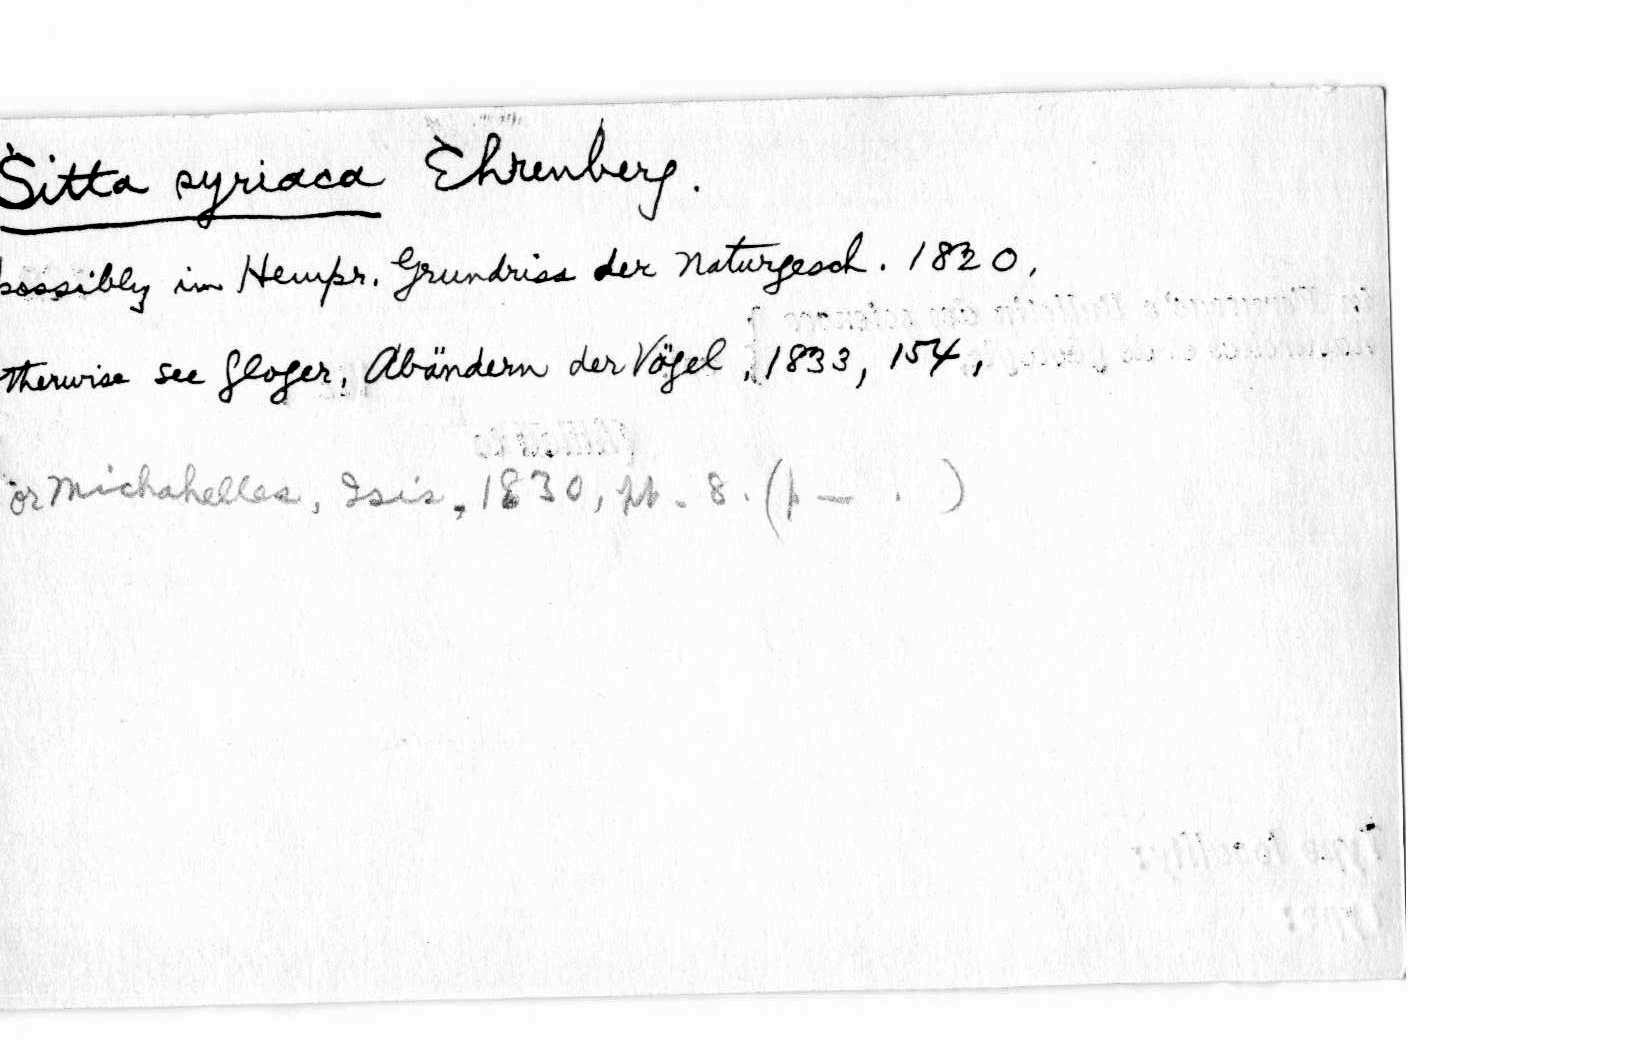 Sitta syriaca Ehrenberg.
possibly in Hempr. Grundriss der Naturgesch. 1820,
therwise see Gloger, Abändern der Vögel, 1833, 154,
or Michahelles, Isis, 1830, pt. 8. (p — . )